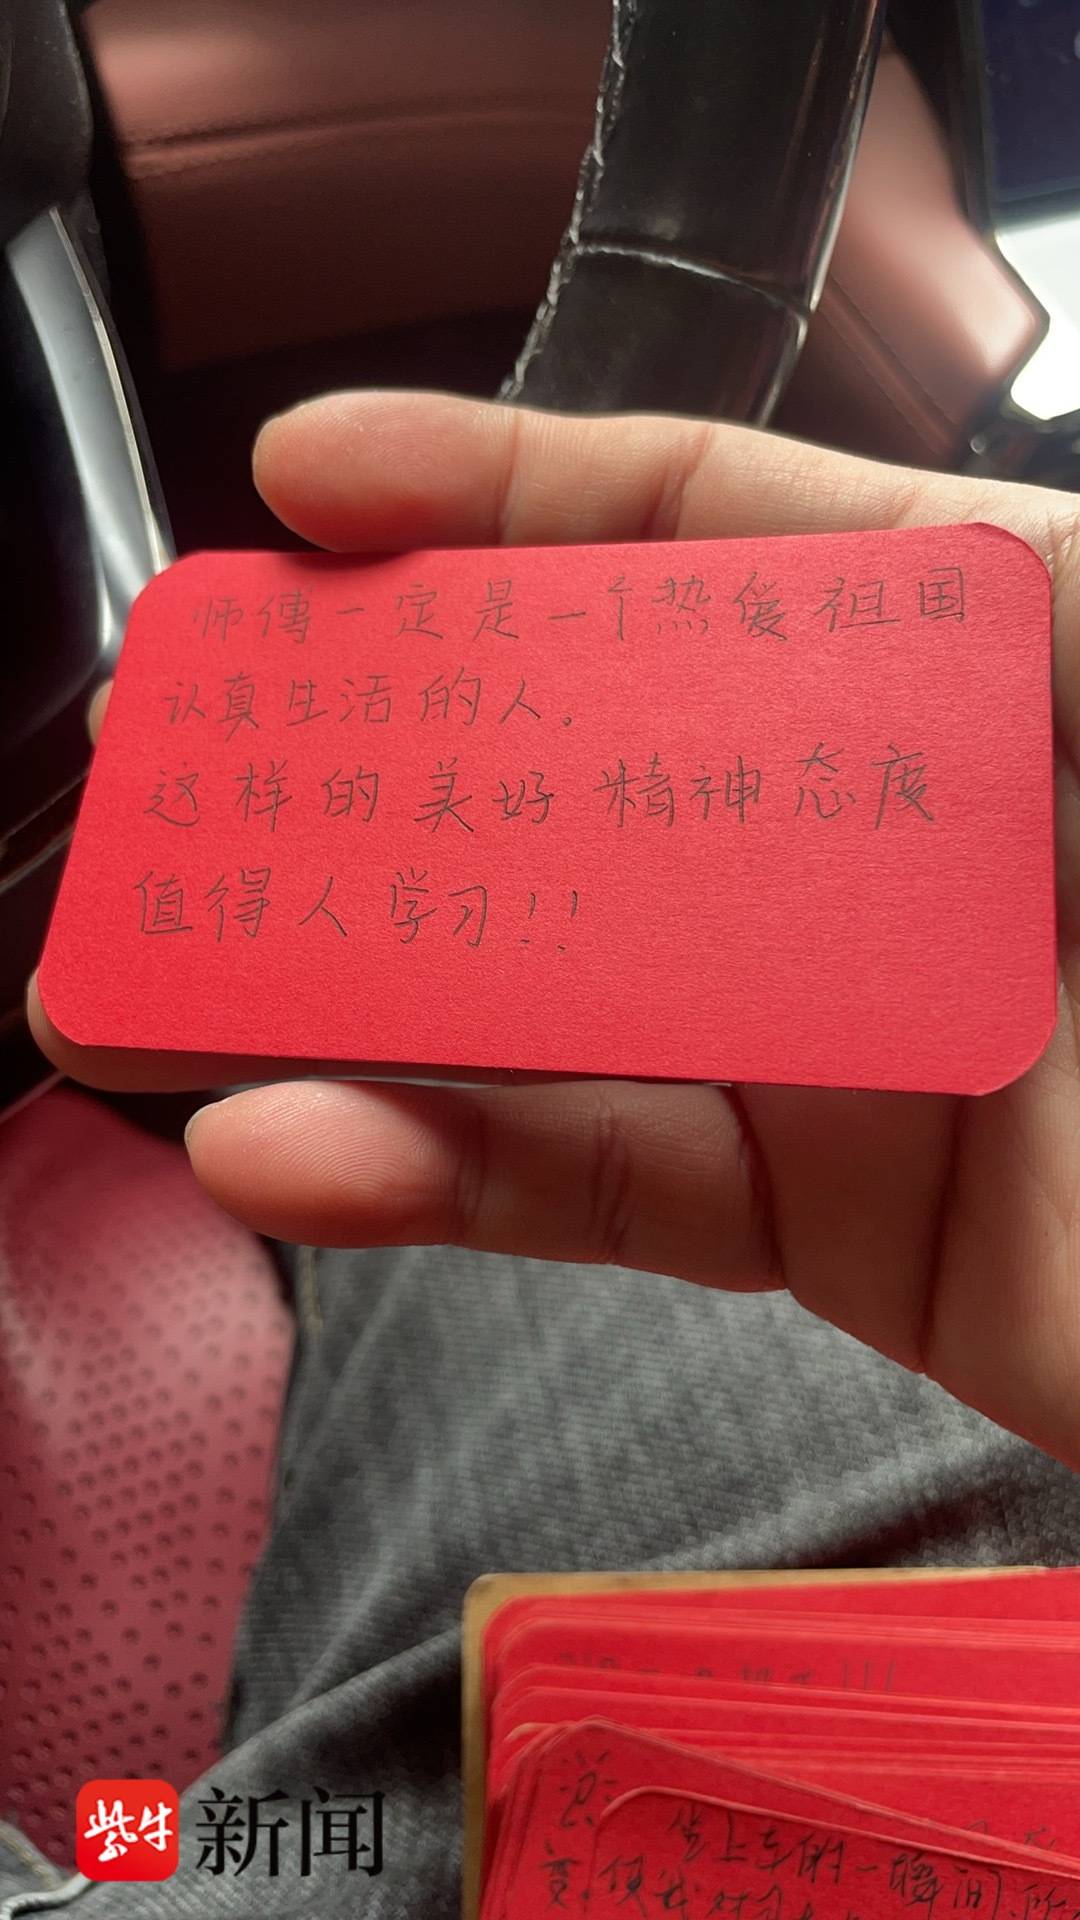 师傅一定是一个热爱祖国
认真生活的人。
这样的美好精神态度
值得人学习!!
坐上车的一瞬间,所
紫牛
新闻